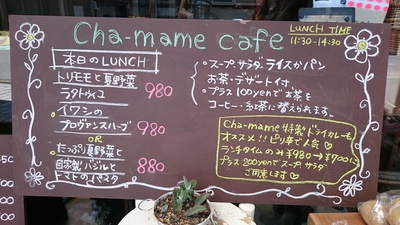 Cha-mame cafe
LUNCH TIME
11:30-14:30
本日のLUNCH
トリモモと夏野菜
ラタトゥイユ 980
・イワシの
プロヴァンスハーブ 980
OR
・たっぷり夏野菜と
自家製バジルと 880
トマトのパスタ
・スープ・サラダ・ライスかパン
お茶・デザート付
・プラス100yenでお茶を
コーヒー・紅茶に替えられます。
Cha-mame特製ドライカレーも
オススメ!!ピリ辛で人気♡
ランチタイムのみ¥980→¥700に
プラス200yenでスープ・サラダ
ご用意します♡